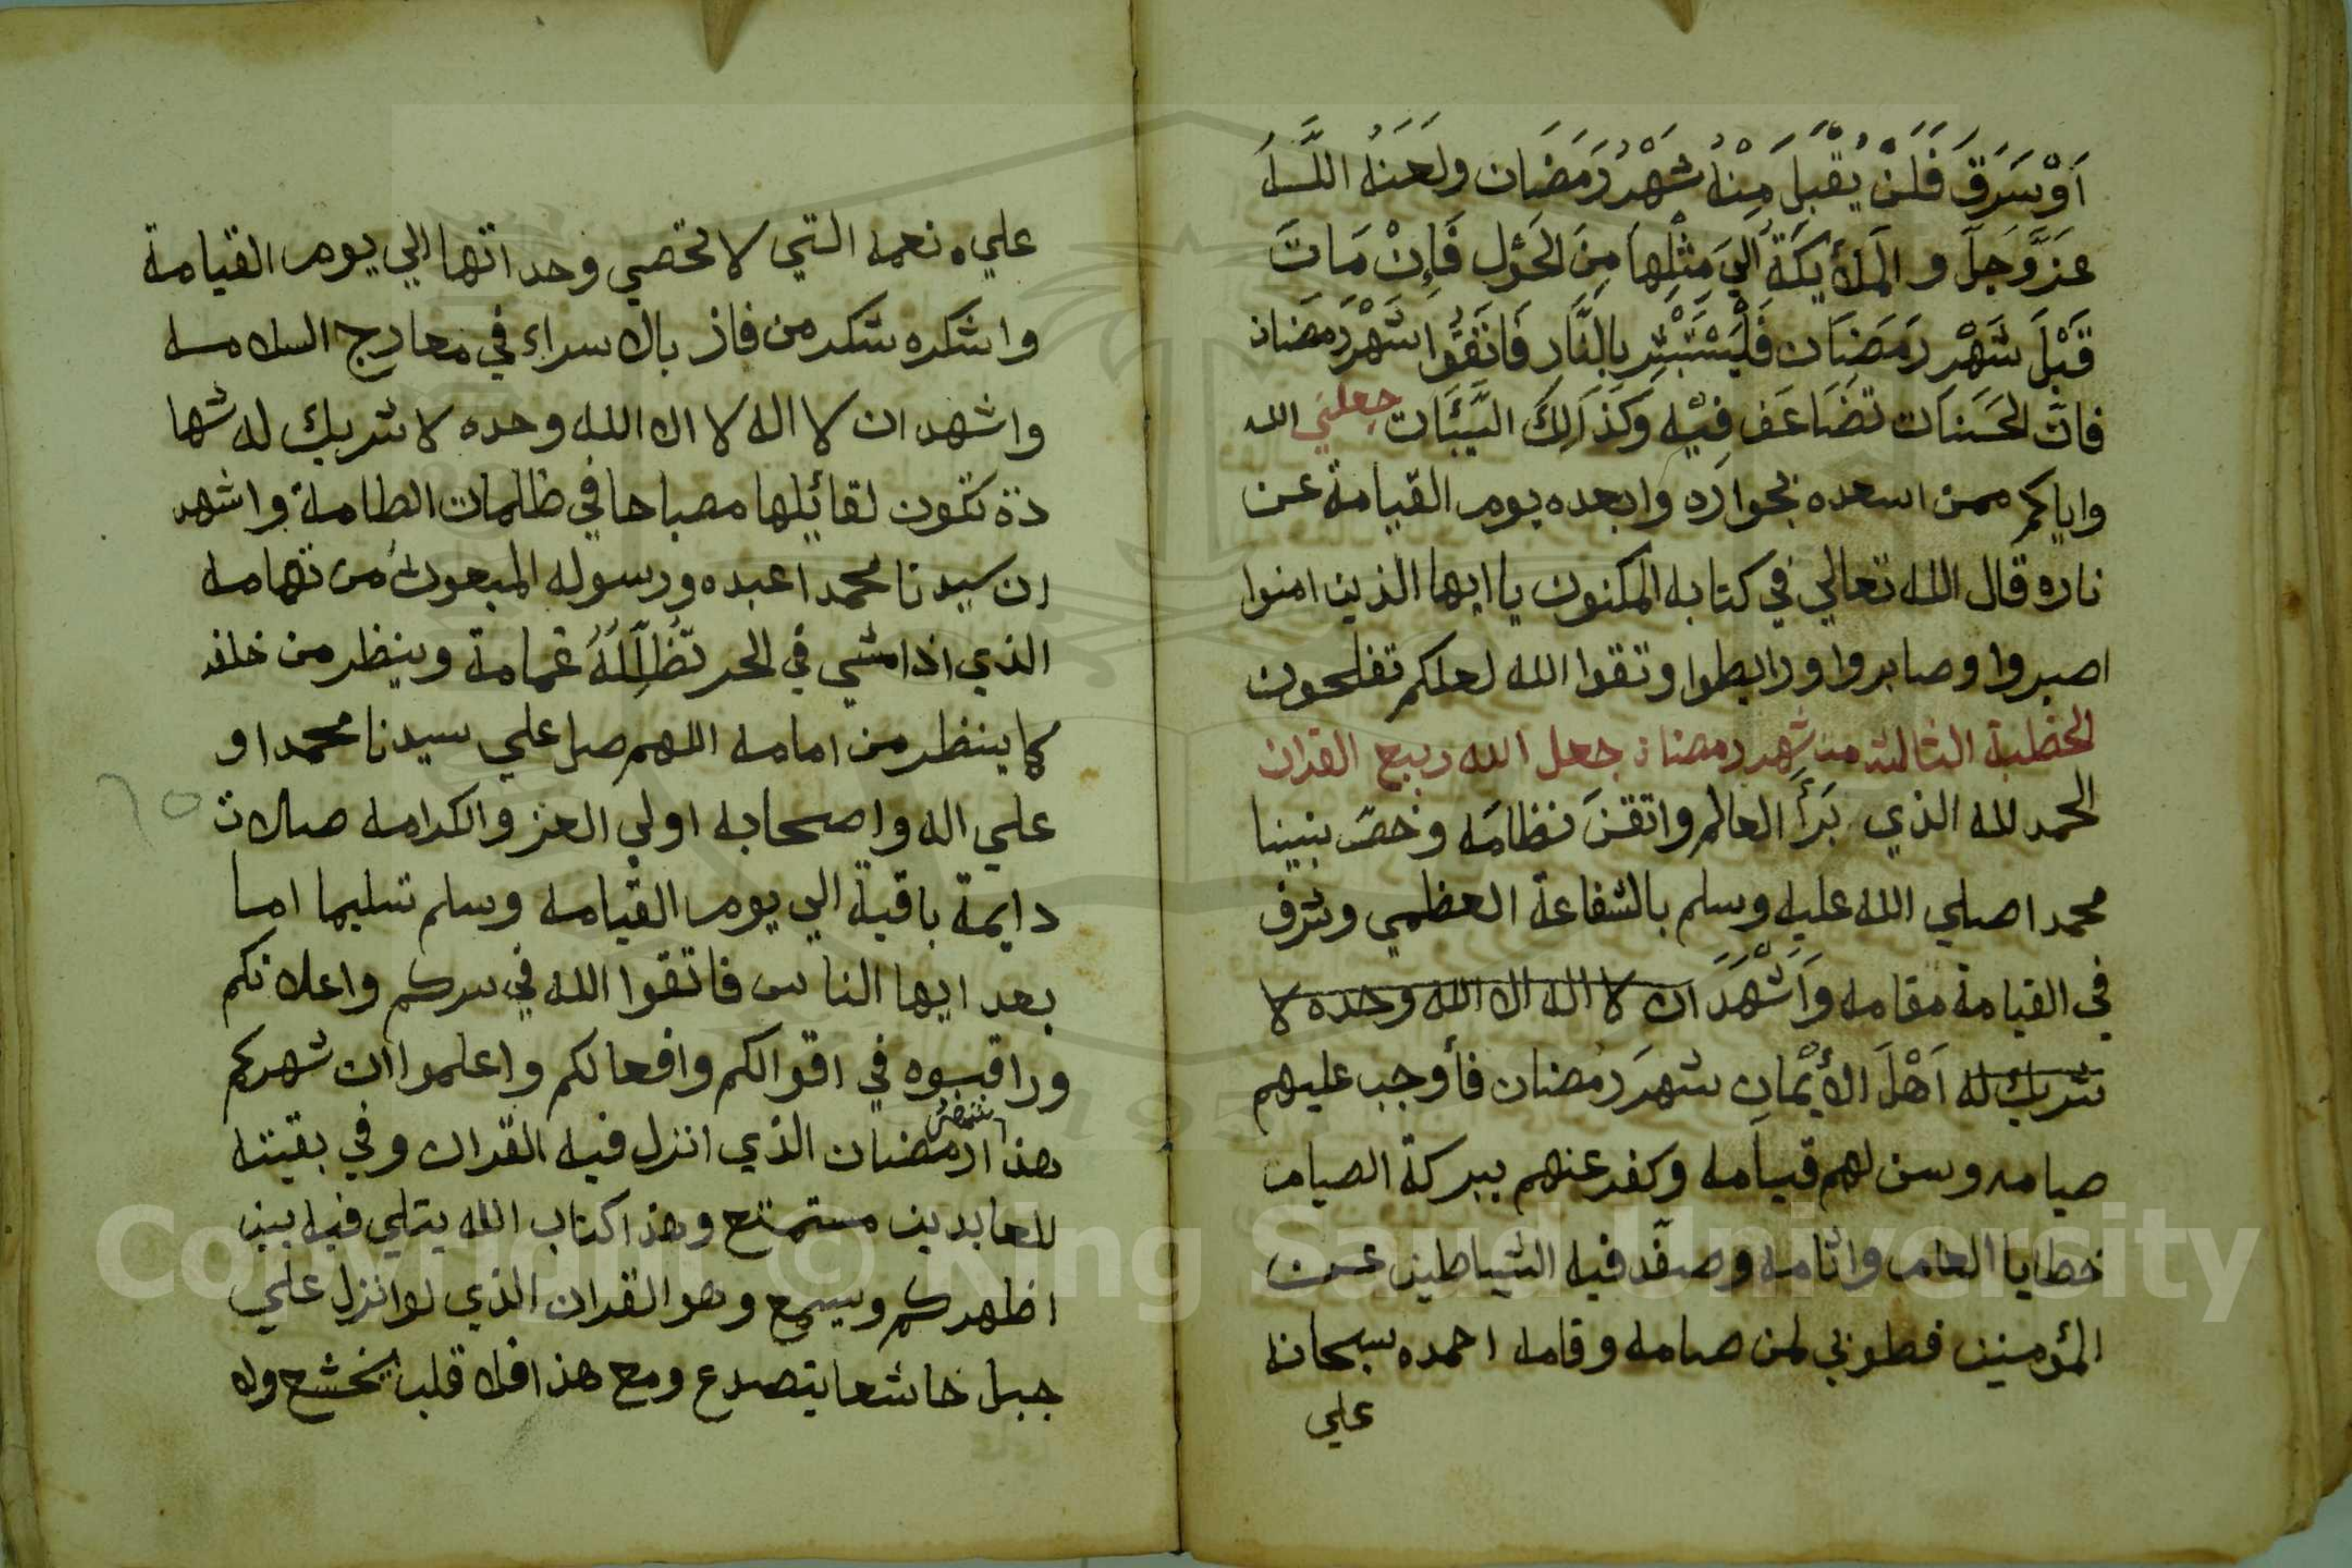 اَوْ سَرَقَ فَلَنْ يُقْبَلَ مِنْهُ شَهْرُ رَمَضَان ولعَنَهُ اللَّه
عَزَّ وَجَلَّ و المَلأَيِكَةُ اِلَي مَثِْلِهَا مِنَ الحَوْلِ فَاِنْ مَاتَ
قَبْلَ شَهْرِ رَمَضَان فَلْيَسْتَبْشِرْ بِالنَّار فَاتَقُوا شَهْرَ رَمَضَان
فان الحَسَنَات تضَاعَف فِيْهِ وَكَذَالِكَ السَّيِّئَات جعلني الله
واياكم ممن اسعده بجواره وابعده يوم القيامة عن
ناره قال الله تعالي في كتابه المكنون يا ايها الذين امنوا
اصبروا وصابروا ورابطوا وتقوا الله لعلكم تفلحون
الخطبة الثالثه من شهر رمضان جعل الله ربيع القران
الحمد لله الذي بَرَأَ العالم واتقنَ نظامَه وخصّ نبينا
محمدا صلي الله عليه وسلم بالشفاعة العظمي وشرف
في القيامة مقامه وَاَشْهَدُ ان لا اله الا الله وحده لا
شريك له اَهْلَ الأِيْمَانِ شهرَ رمضان فأوجب عليهم
صيامه وسن لهم قيامه وكفر عنهم ببركة الصيام
خطايا العام واثامه وصفّد فيه الشياطين عن
المؤمنين فطوبي لمن صامه وقامه احمده سبحانه
علي
علي نعمه التي لا تحصي وحداتها الي يوم القيامة
واشكره شكر من فاز بالاسراء في معارج السلامه
واشهد ان لا اله لا الا الله وحده لا شريك له شها
دة تكون لقائلها مصباحا في ظلمات الطامة واشهد
ان سيدنا محمدا عبده ورسوله المبعوث من تهامه
الذي اذا مشي في الحر تُظَلِّلَهُ غمامة وينظر من خلفه
كما ينظر من امامه اللهم صل علي سيدنا محمدا و
علي اله واصحابه اولي العز والكرامه صلات
دايمة باقية الي يوم القيامه وسلم تسليما اما
بعد ايها الناس فاتقوا الله في سركم واعلانكم
وراقبوه في اقوالكم وافعالكم واعلموا ان شهركم
هذا رمضان الذي انزل فيه القران وفي بقيته
للعابدين مستمتع وهذا كتاب الله يتلي فيه بين
اظهركم ويسمع وهو القران الذي لوا نزل علي
جبل خاشعا يتصدع ومع هذا فلا قلب يخشع ولا